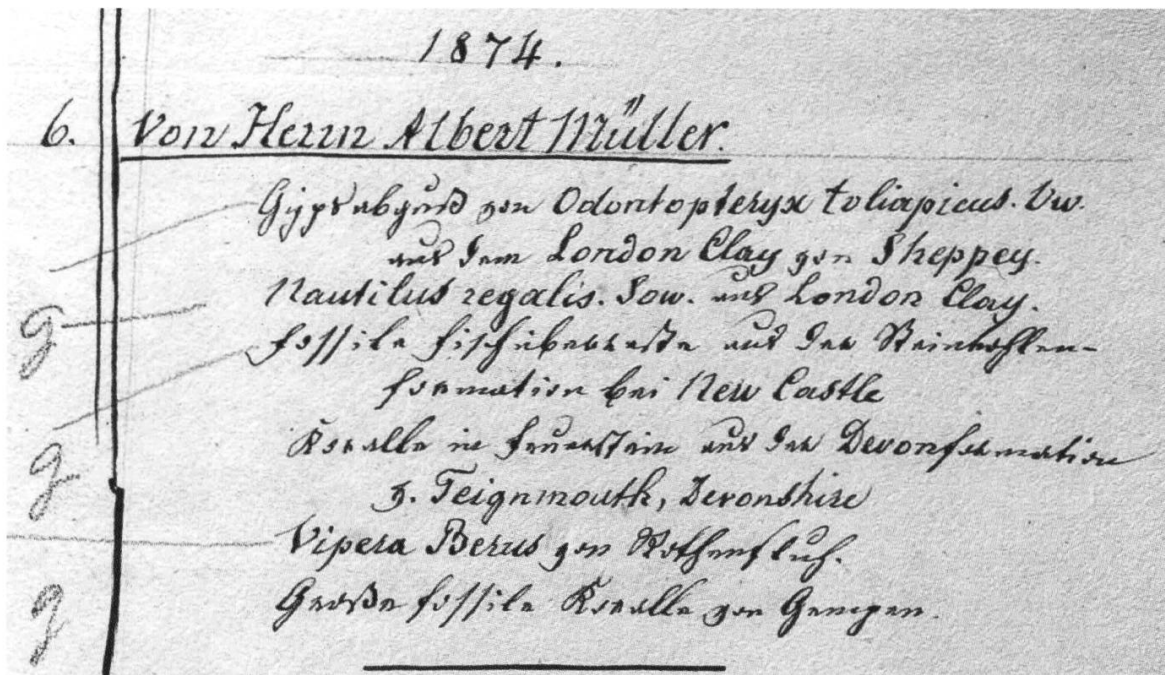 1874.
6. Von Herrn Albert Müller.
Gypsabguß von Odontopteryx toliapicus. Ow.
aus dem London Clay von Sheppey.
Nautilus regalis. Sow. aus London Clay.
g
Fossile Fischüberreste aus der Steinkohlen-
formation bei New Castle
Koralle in Feuerstein aus der Devonformation
g
v. Teignmouth, Devonshire
Vipera Berus von Rothenfluh.
Große fossile Koralle von Gempen.
g